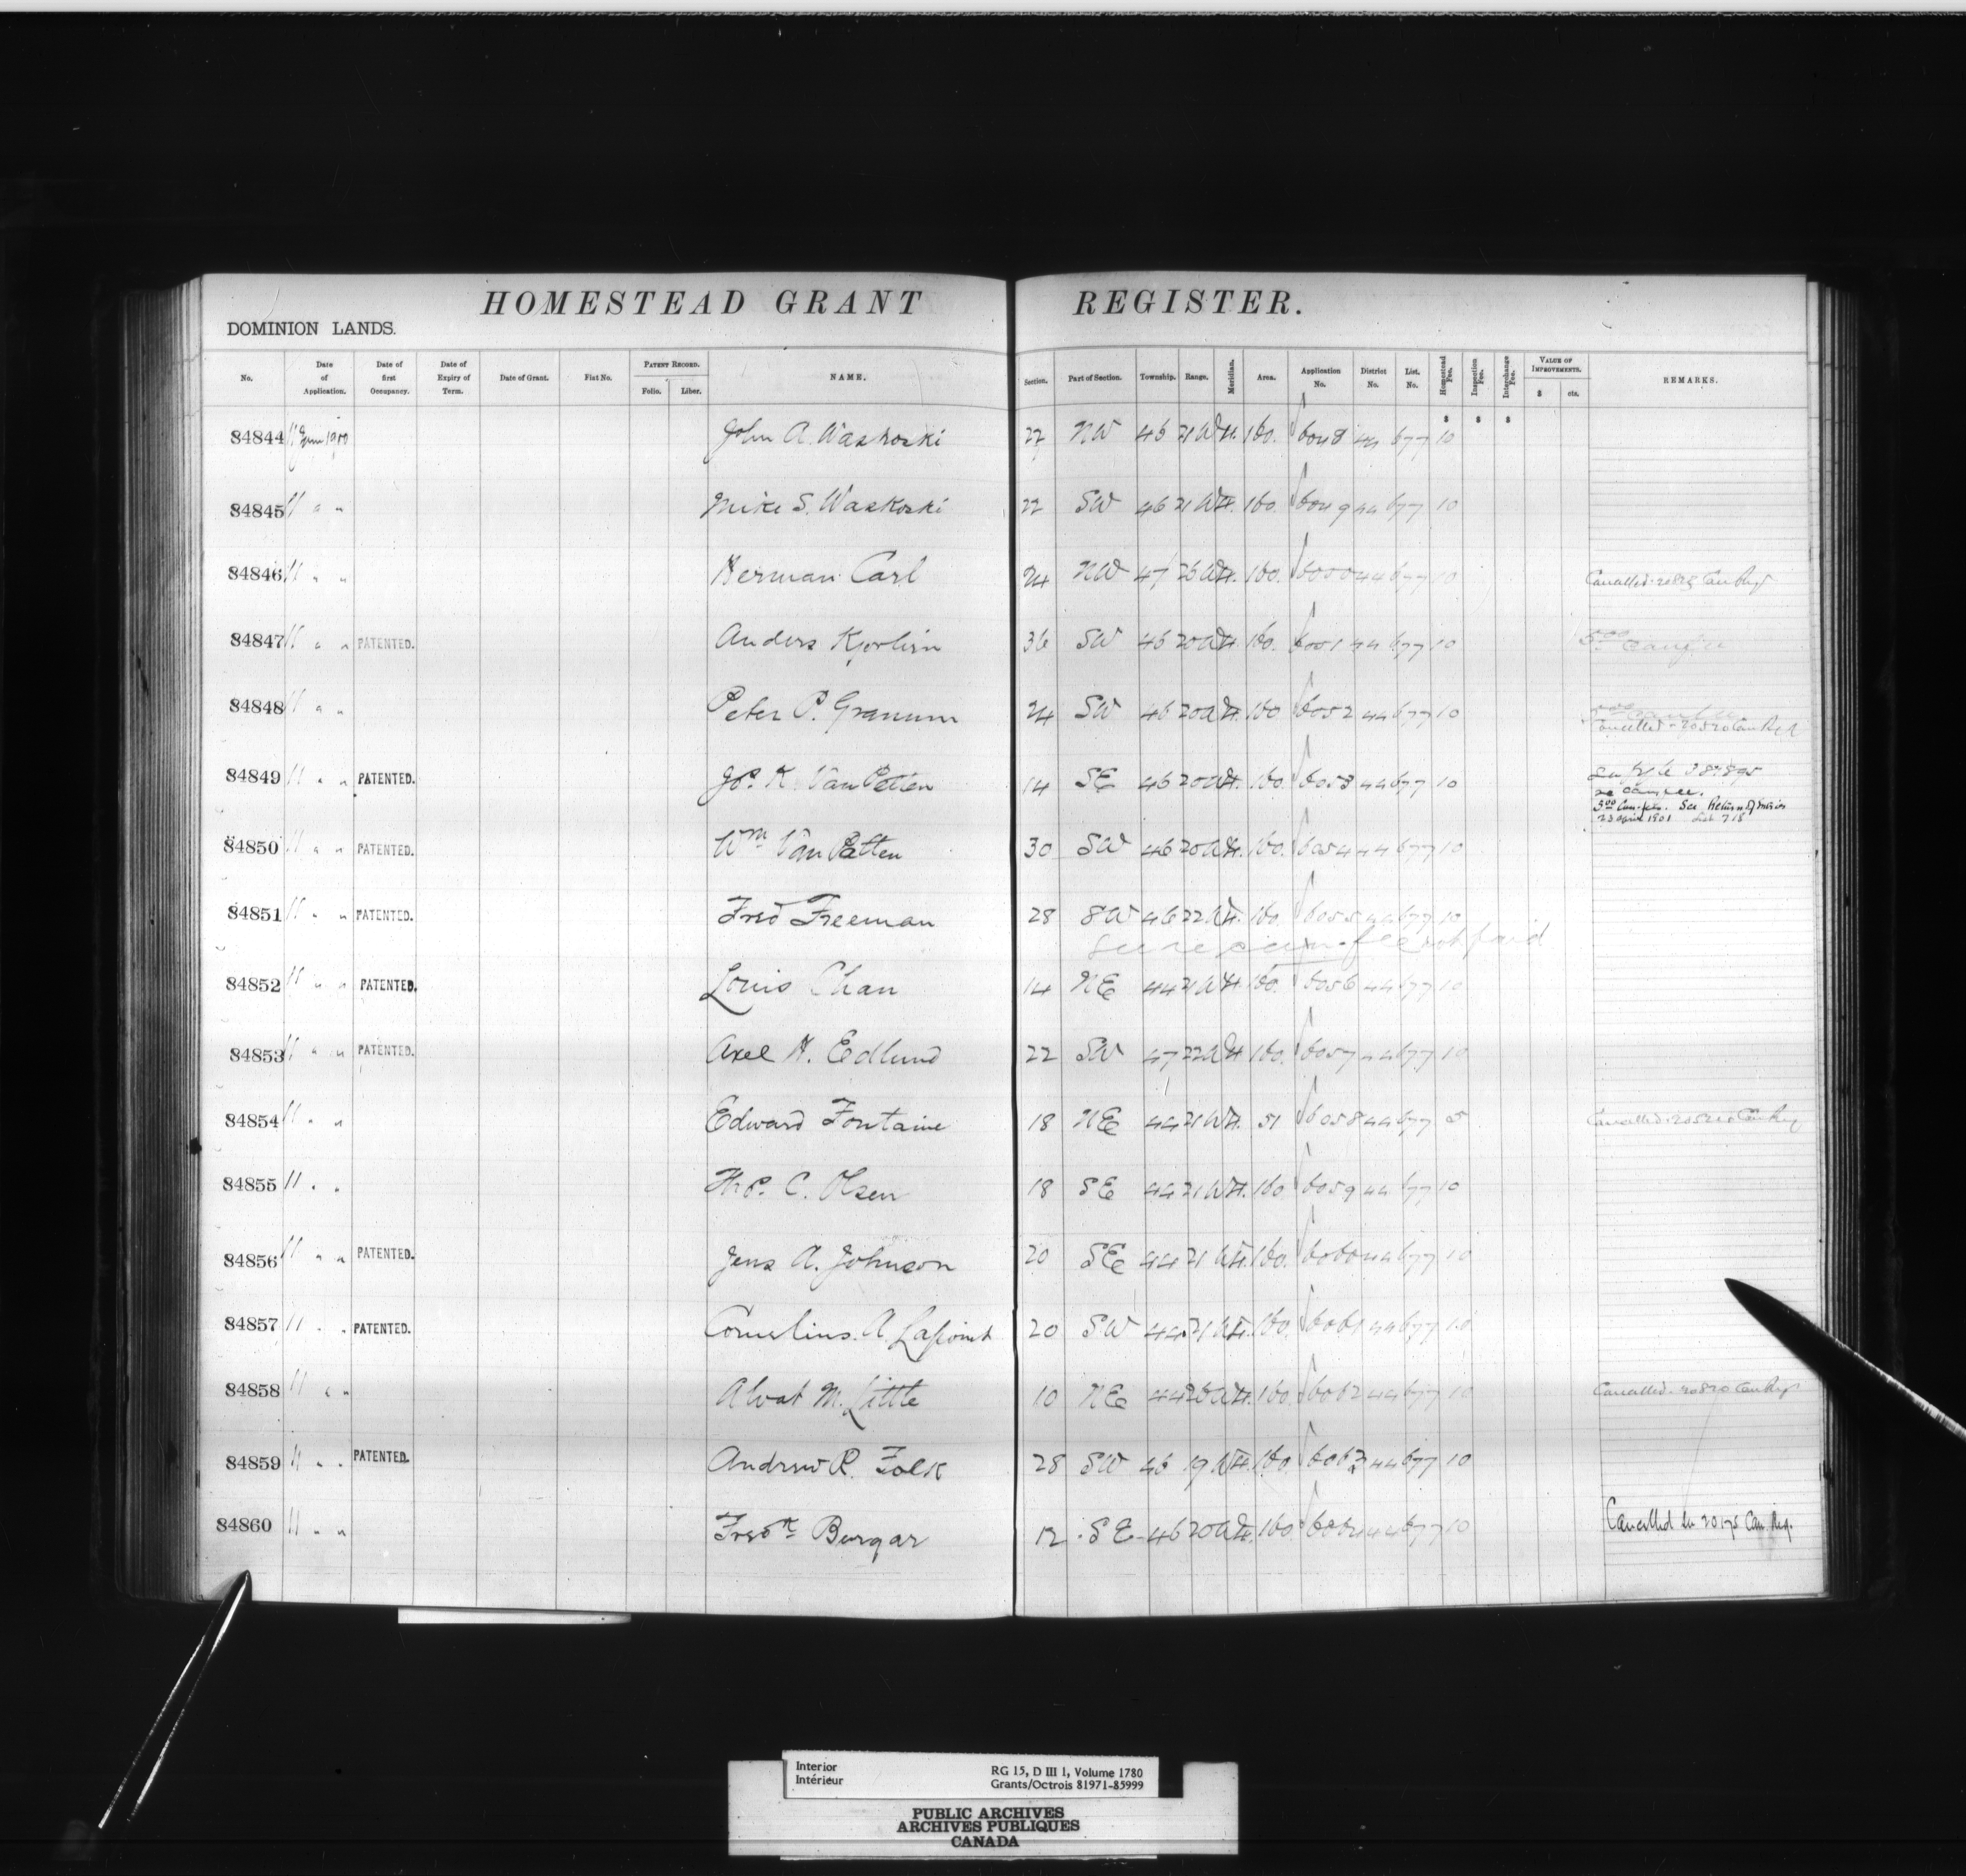 HOMESTEAD GRANT REGISTER.
DOMINION LANDS.
No. Date of Application. Date of first Occupancy. Date of Expiry of Term. Date of Grant. Fiat No. PATENT RECORD. Folio. Liber. NAME. Section. Part of Section. Township. Range. Meridian. Area. Application No. District No. List. No. Homestead Fee. Inspection Fee. Interchange Fee. VALUE OF IMPROVEMENTS. $ cts. REMARKS.
$ $ $
84844 11 June 1900 John A. Waskoski 22 NW 46 21 W 4. 160. 6048 44 677 10
84845 11 " " Mike S. Waskoski 22 SW 46 21 W 4. 160. 6049 44 677 10
84846 11 " " Herman Carl 24 NW 47 W 4. 160. 6050 44 677 10 Cancelled Can Reg
84847 11 " " PATENTED. Anders 36 SW 46 20 W 4. 160. 6051 44 677 10
84848 11 " " Peter P. Granum 24 SW 46 20 W 4. 160 6052 44 677 10
Cancelled - 20520 Can Reg
84849 11 " " PATENTED. Jos. K. VanPatten 14 SE 46 20 W 4. 160. 6053 44 677 10
re
See Return of
23 April 1901 List 718
84850 11 " " PATENTED. Wm Van Patten 30 SW 46 20 W 4. 160. 6054 44 677 10
84851 11 " " PATENTED. Fred Freeman 28 SW 46 22 W 4. 160. 6055 44 677 10
fee not paid
84852 11 " " PATENTED. Louis Chan 14 NE 44 21 W 4. 160. 6056 44 677 10
84853 11 " " PATENTED. Axel H. Edlund 22 SW 47 22 W 4 160. 6057 44 677 10
84854 11 " " Edward Fontaine 18 NE 44 21 W 4. 51 6058 44 677 5 Cancelled Can Reg
84855 11 " " C. Olsen 18 SE 44 21 W 4. 160 6059 44 677 10
84856 11 " " PATENTED. Jens A. Johnson 20 SE 44 21 W 4. 160. 6060 44 677 10
84857 11 " " PATENTED. Cornelius. A. Lapoint 20 SW 44 21 W 4. 160. 6061 44 677 10
84858 11 " " Alvat M. Little 10 NE 44 20 W 4. 160. 6062 44 677 10 Cancelled - Can Reg
84859 11 " " PATENTED. Andrew R. Folk 28 SW 46 19 W 4. 160. 6063 44 677 10
84860 11 " " Fredk Burgar 12 SE 46 20 W 4. 160 6064 44 677 10 Cancelled 20175 Can. Reg.
Interior RG 15, D III 1, Volume 1780
Intérieur Grants/Octrois 81971-85999
PUBLIC ARCHIVES
ARCHIVES PUBLIQUES
CANADA